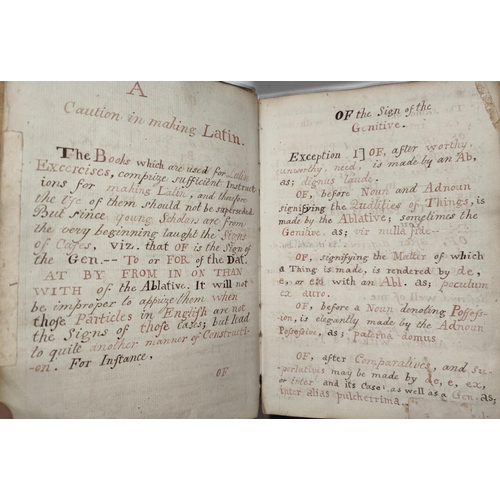 A
Caution in making Latin.
The Books which are used for Latin
Exercises, comprize sufficient Instruct
ions for making Latin, and therefore
the Use of them should not be superseded
But since young Scholars are from
the very beginning taught the Signs
of Cases, viz. that OF is the Sign of
the Gen. -- TO or FOR of the Dat.
AT BY FROM IN ON THAN
WITH of the Ablative. It will not
be improper to apprize them when
those Particles in English are not
the Signs of those Cases; but lead
to quite another manner of Constructi-
-on. For Instance,
OF
OF the Sign of the
Genitive.
Exception I] OF, after worthy,
unworthy, need, is made by an Ab,
as; dignus laude.
OF, before Noun and Adnoun
signifying the Qualities of Things, is
made by the Ablative; sometimes the
Genitive. as; vir nulla fide--
OF, signifying the Matter of which
a Thing is made, is rendered by de,
e, or ex with an Abl. as; poculum
ex auro.
OF, before a Noun denoting Possess-
ion, is elegantly made by the Adnoun
Possessive, as; paterna domus
OF, after Comparatives, and Su-
perlatives may be made by de, e, ex,
or inter and its Case; as well as a Gen. as;
inter alias pulcherrima.